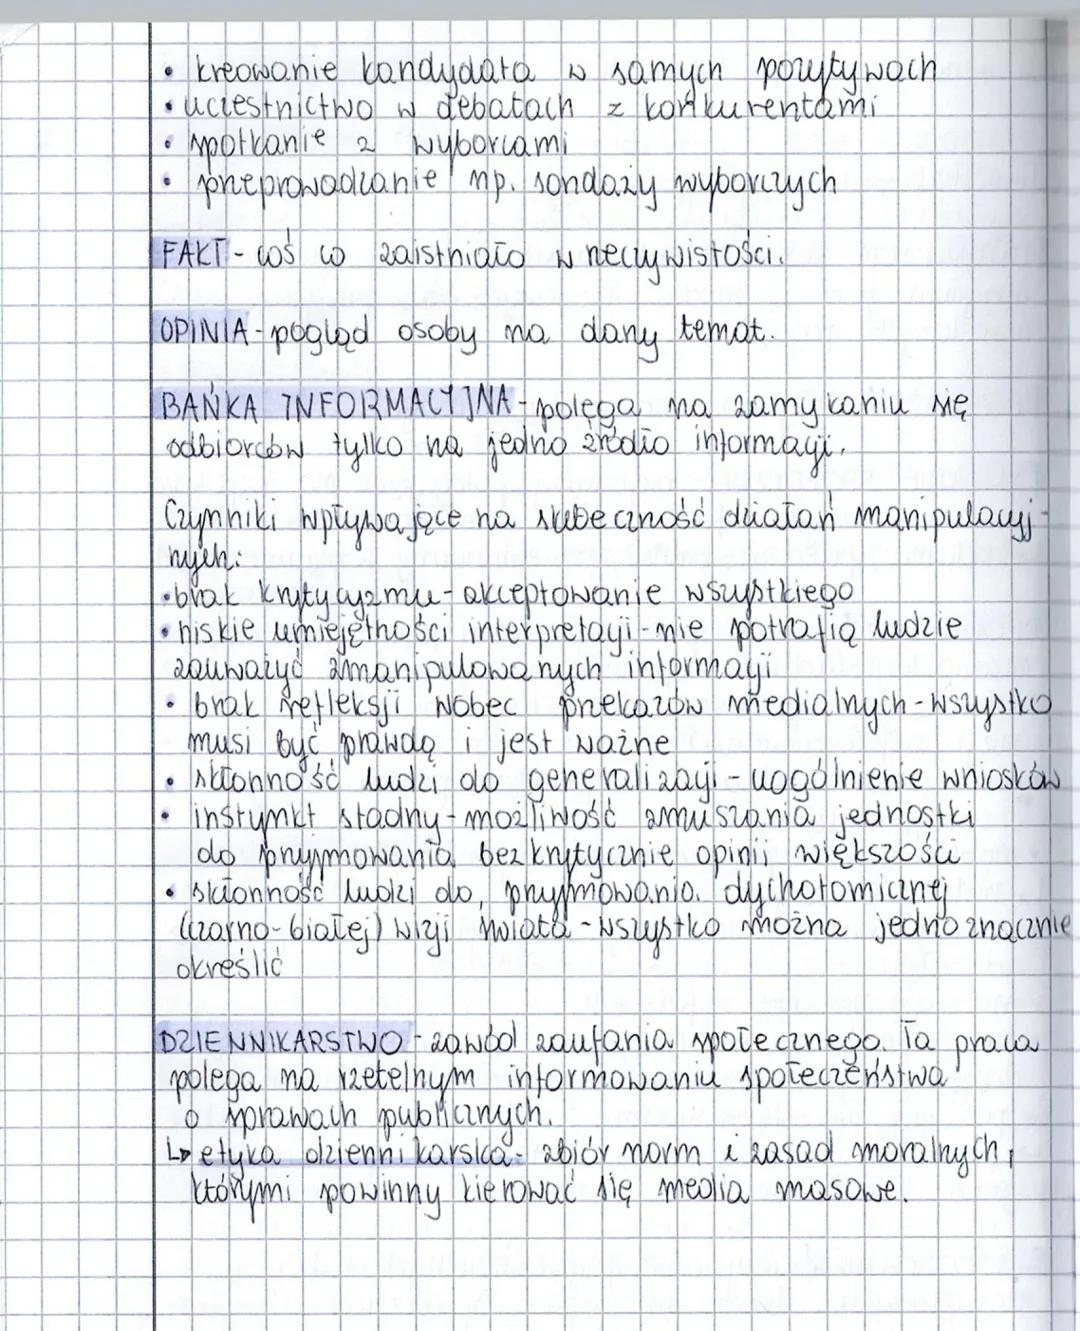 • kreowanie kandydata w samych pozytywach
• uczestnictwo w debatach z konkurentami
• spotkanie z wyborcami
• przeprowadzanie np. sondaży wyborczych
FAKT - coś co zaistniało w rzeczywistości.
OPINIA - pogląd osoby na dany temat.
BAŃKA INFORMACYJNA - polega na zamykaniu się
odbiorców tylko na jedno źródło informacji.
Czynniki wpływające na skuteczność działań manipulacyj-
nych:
• brak krytycyzmu - akceptowanie wszystkiego
• niskie umiejętności interpretacji - nie potrafią ludzie
zauważyć zmanipulowanych informacji
• brak refleksji wobec przekazów medialnych - wszystko
musi być prawdą i jest ważne
• skłonność ludzi do generalizacji - uogólnienie wniosków
• instynkt stadny - możliwość zmuszania jednostki
do przyjmowania bezkrytycznie opinii większości
• skłonność ludzi do przyjmowania dychotomicznej
(czarno-białej) wizji świata - wszystko można jednoznacznie
określić
DZIENNIKARSTWO - zawód zaufania społecznego. Ta praca
polega na rzetelnym informowaniu społeczeństwa
o sprawach publicznych.
↳ etyka dziennikarska - zbiór norm i zasad moralnych,
którymi powinny kierować się media masowe.